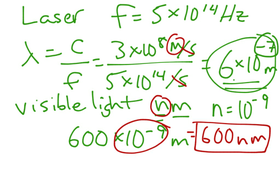 Laser f = 5×10¹⁴Hz
λ = c/f = 3×10⁸ m/s / 5×10¹⁴ /s = 6×10⁻⁷ m
visible light nm n = 10⁻⁹
600 ×10⁻⁹ m = 600nm